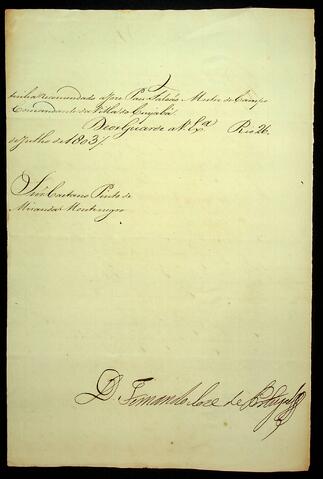 tenha recomendado a Joze Paes Falcão Mestre de Campo
Comandante da Villa do Cuyabá.
Deos Guarde a V. Exª Rio 26.
de Julho de 1803 //
Snr. Caetano Pinto de
Miranda Montenegro
D. Fernando Joze de Portugal